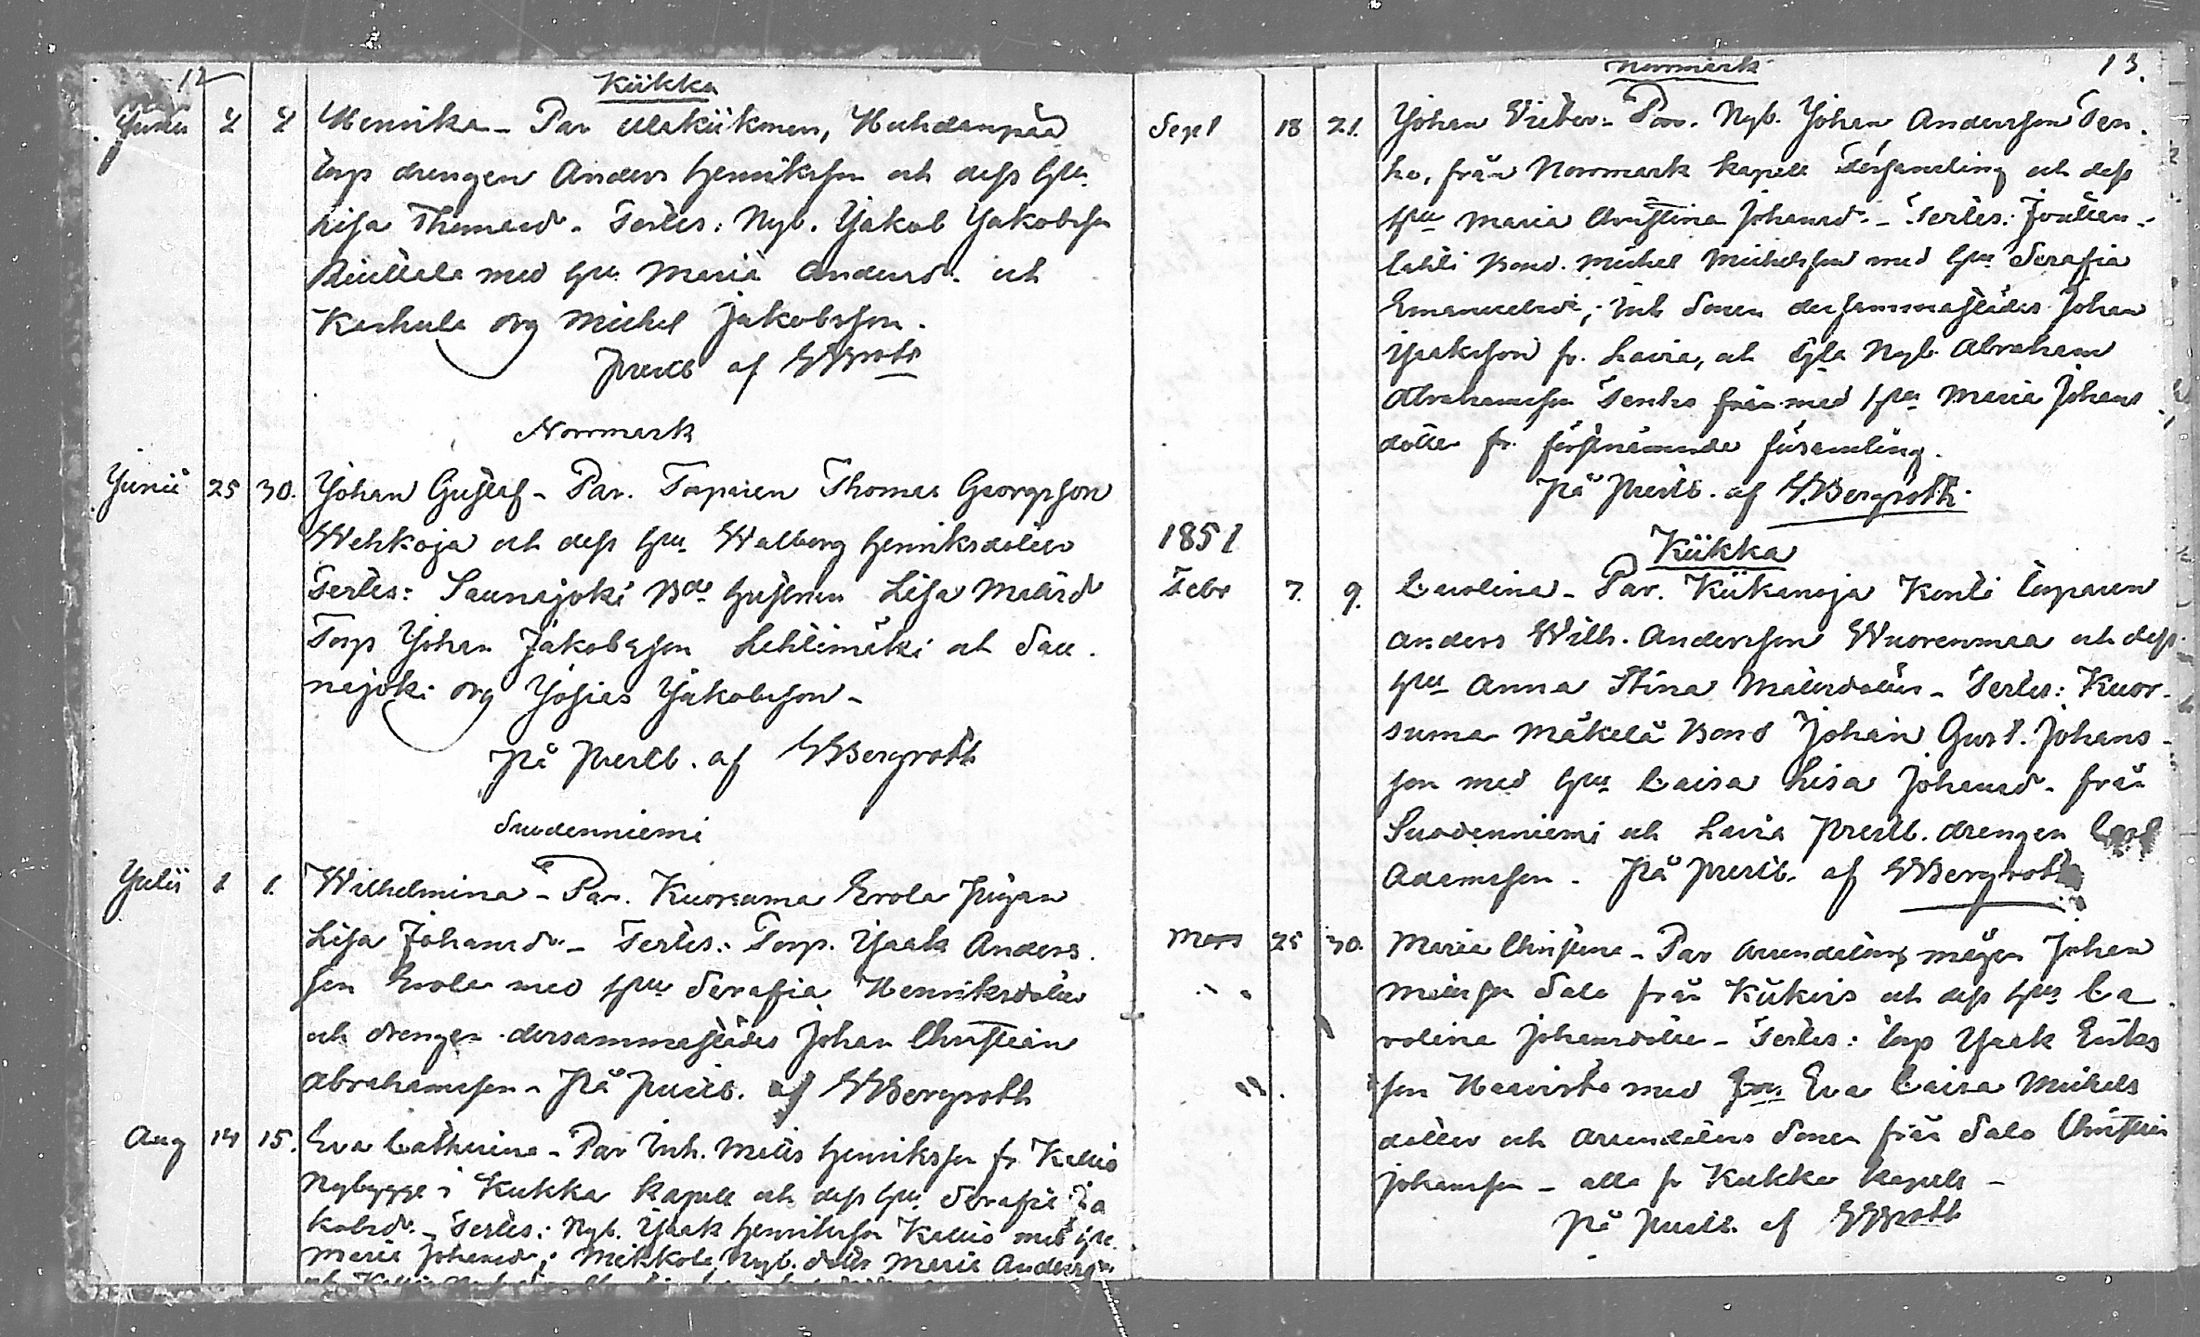 12
Kiikka
Junii 2 2 Henrika - Par Alakiikonen, Huhdanpää
torp drengen Anders Henriksson och dess Hu
Lisa Thomasd. Testes: Nyb. Jakob Jakobsson
med Hu. Maria Andersd. och
Keskula drg Michel Jakobsson.
prestb af GBgroth
Norrmark
Junii 25 30. Johan Gustaf - Par. Torparen Thomas Georgsson
Wehkoja och dess Hu. Walborg Henriksdotter
Testes: Saunajoki Bd. hustrun Lisa Matsd
Torp Johan Jakobsson Lehtimäki och Sau-
najoki drg Josias Jakobsson -
på prestb. af GBergroth
Suodenniemi
Julii 1 1. Wilhelmina - Par. Kuorsuma Erola pigan
Lisa Johansdr. - Testes: Torp. Isaak Anders-
son Erola med Hu Serafia Henriksdotter
och drengen dersammastädes Johan Christian
Abrahamsson - på prestb. af GBergroth
Aug 14 15. Eva Catharina - Par Inh. Matts Henriksson fr Kallio
Nybygge i Kiikka Kapell och dess Hu Serafia Ja
kobsdr. - Testes: Nyb. Isaak Henriksson Kallio med Hu.
Maria Johansd; Mikkola Nyb. dottr Maria Anders
13.
Norrmark
Sept 18 21. Johan Victor - Par. Nyb. Johan Andersson Ten-
ho, från Norrmark kapell Församling och dess
Hu Maria Christina Johansd. - Testes:
lahti Bond. Michel Michelsson med Hu Serafia
Emanuelsdr, Inh Sonen dersammastädes Johan
Isaksson fr. Lavia, och Nyb. Abraham
Abrahamsson Tenho från med Hu Maria Johans
dotter fr. förstnämnde församling.
på prestb. af G.Bergroth
1851
Kiikka
Febr 7. 9. Carolina - Par. Kiikanoja Konti torparen
Anders Wilh. Andersson Wuorenmaa och dess
Hu Anna Stina Matsdotter - Testes: Kuor-
suma Mäkelä Bond Johan Gust. Johans-
son med Hu Caisa Lisa Johansd. från
Suodenniemi och Lavia Prestb. drengen Carl
Adamsson. på prestb. af GBergroth
Mars 25 30. Maria Christina - Par Arrendators mågen Johan
Matsson Salo från Kiikois och dess Hu Ca
rolina Johansdotter - Testes: torp Isaak Eriks
son Haavisto med Hu Eva Caisa Michels
dotter och Arrendators Sonen från Salo Christian
Johansson - alla fr Kiikka kapell -
på prestb. af GBgroth